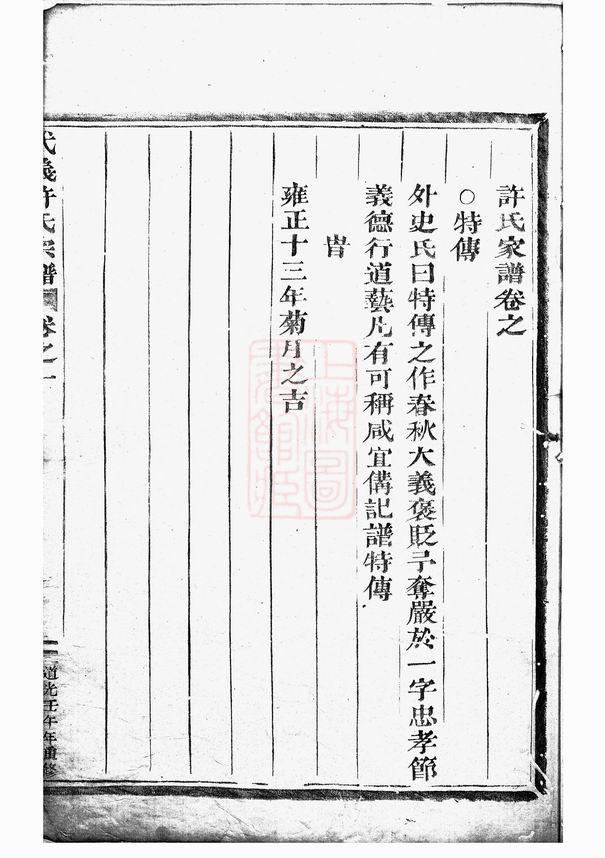 許氏家譜卷之
○特傳
外史氏曰特傳之作春秋大義褒貶予奪嚴於一字忠孝節
義德行道藝凡有可稱咸宜備記譜特傳
旹
雍正十三年菊月之吉
義許氏宗譜 卷之一
道光壬午年重修